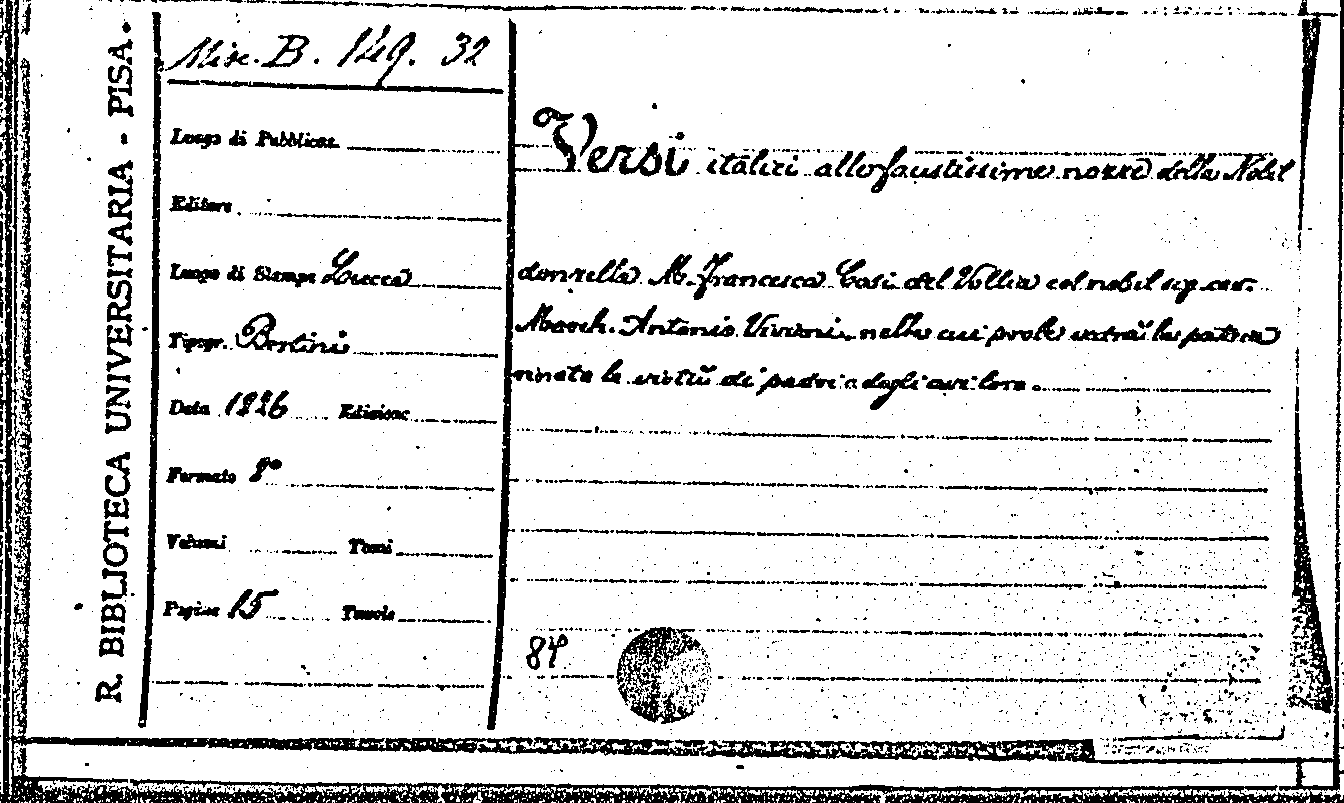 R. BIBLIOTECA UNIVERSITARIA - PISA.
Misc. B. 149. 32
Luogo di Pubblicaz.
Editore
Luogo di Stampa Lucca
Tipogr. Bertini
Data 1826 Edizione
Formato 8°
Volumi Tomi
Pagine 15 Tavole
Versi italici alle faustissime nozze della Nobil
donzella M. Francesca Cosi del Vollia col nobil sig. cav.
March. Antonio Viviani, nella cui prole vedrà la patria
rinate le virtù di padri e degli avi loro.
84